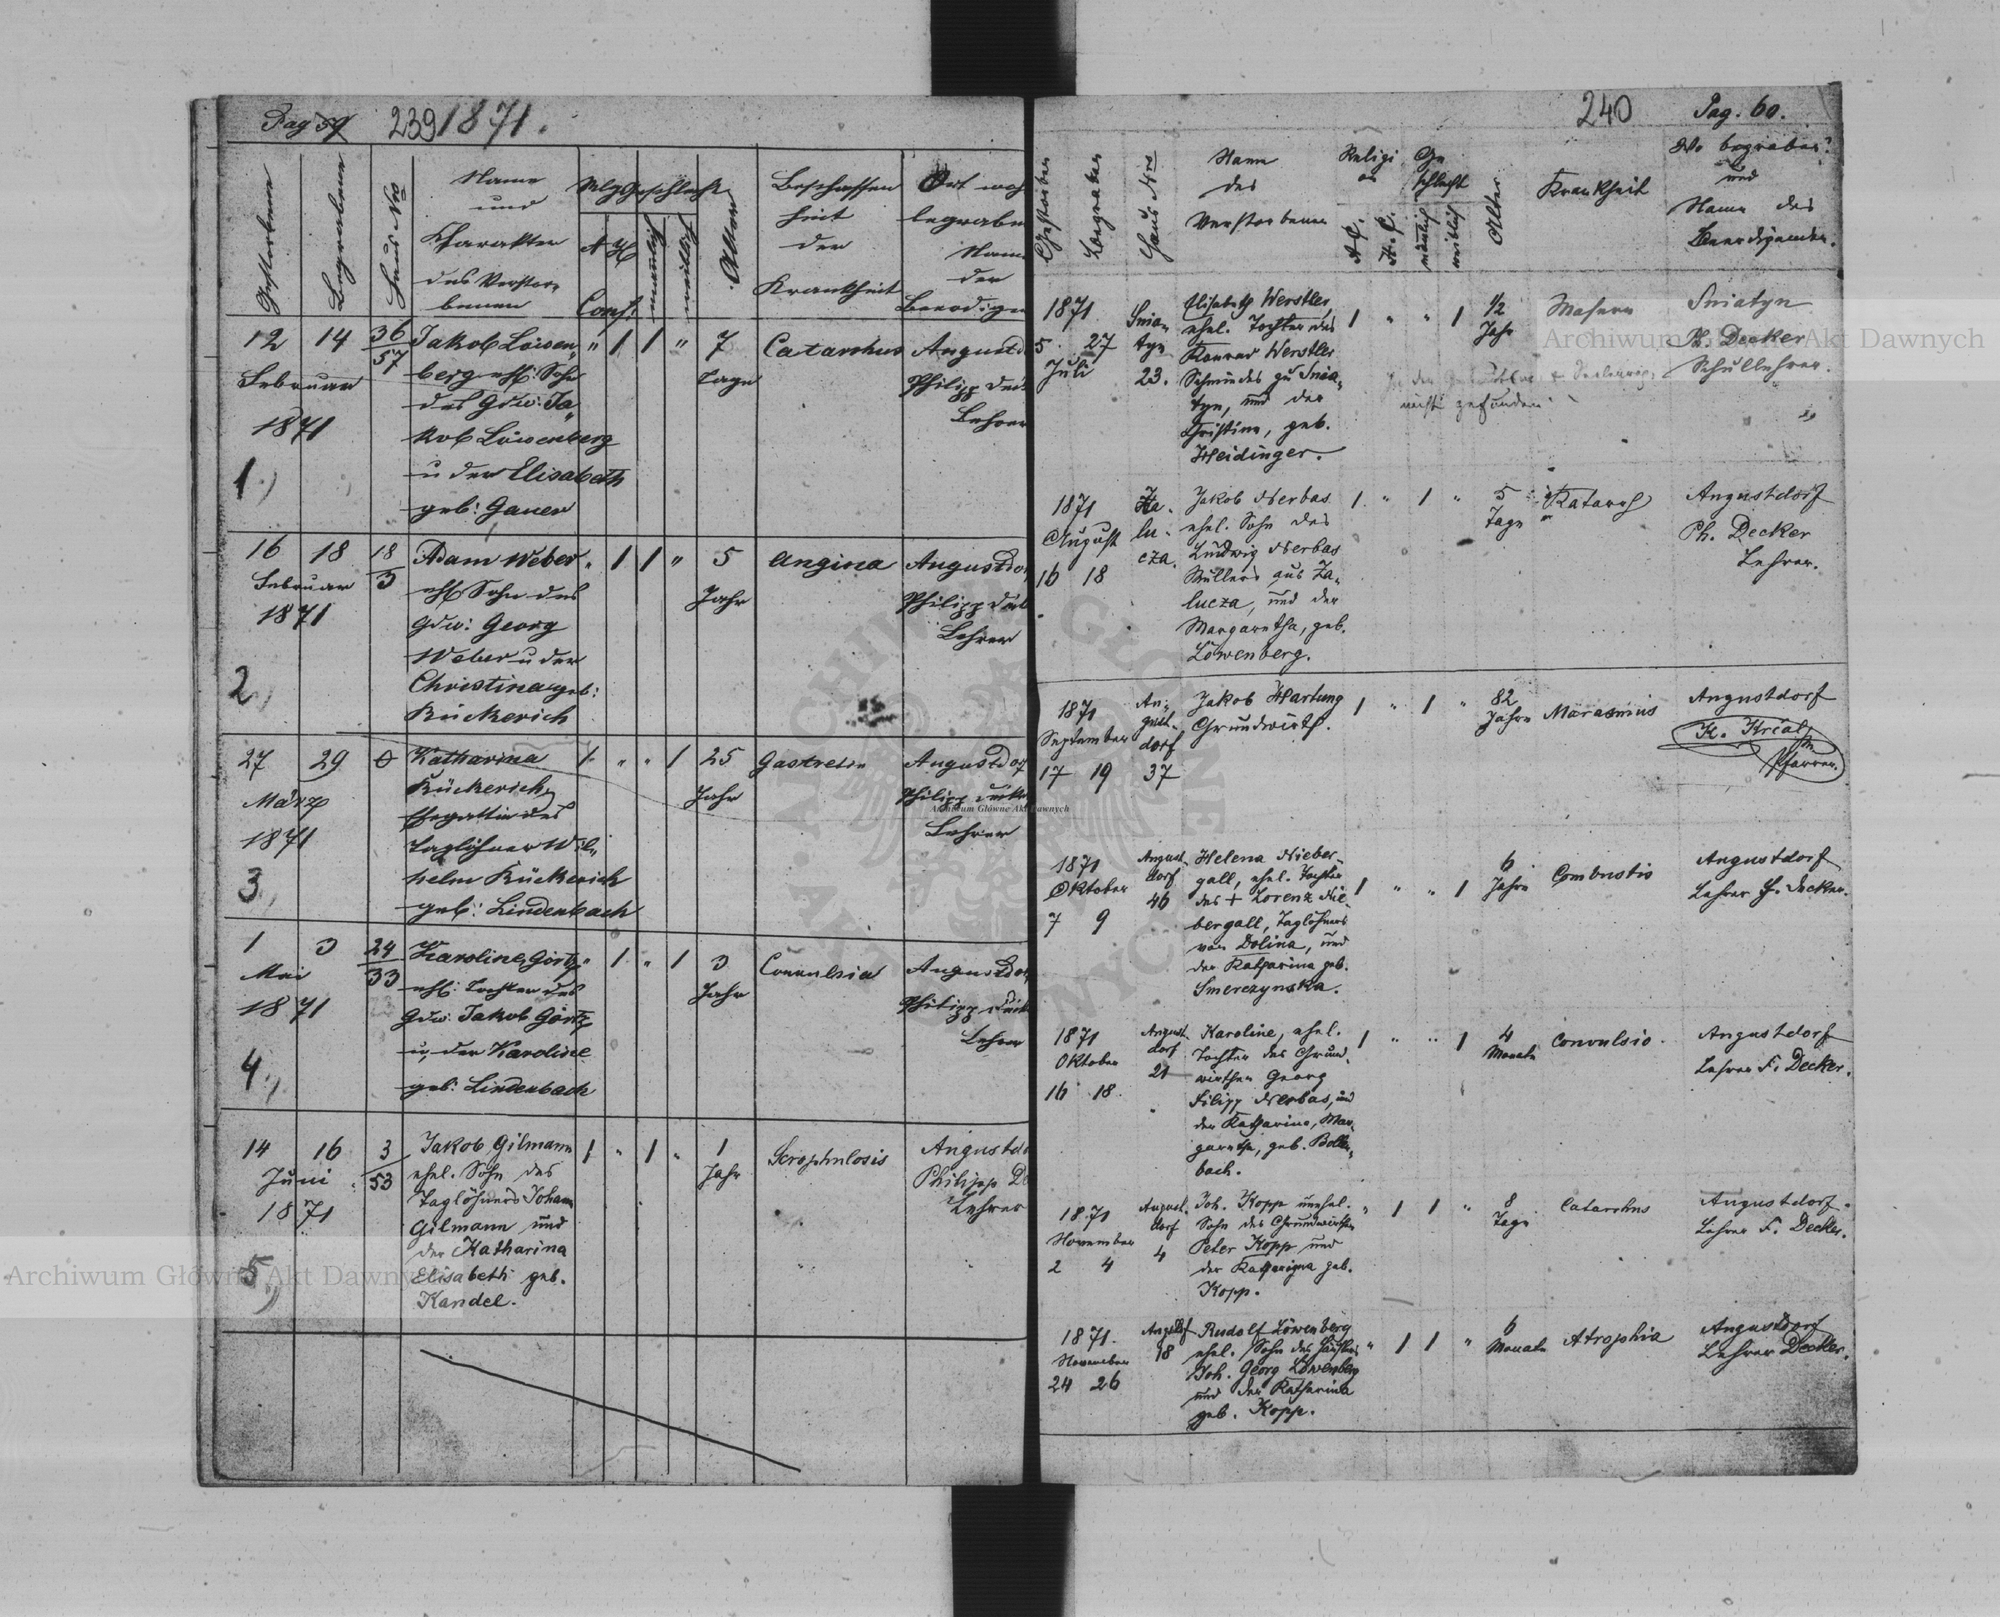 Pag 59 239 1871.
Gestorben
Begraben
Haus Nro
Name
und
Charakter
des Verstor-
benen
Geschlecht
A H
Conf:
männlich
weiblich
Alter
Beschaffen
heit
der
Krankheit
Ort wo
begraben
Name
der
Beerdigen
12 14 36/57 Jakob Löwen- " 1 1 " 7 Catarrhus Augustd
Februar berg ehl: Sohn Tage Philipp
des Gdw: Ja- Lehrer
1871 kob Löwenberg
1.) u der Elisabeth
geb: Gauer
16 18 18/3 Adam Weber " 1 1 " 5 Angina Augustdo
Februar ehl Sohn des Jahr Philipp
1871 Gdw: Georg Lehrer
Weber u der
2.) Christina geb:
Rückerich
27 29 0 Katharina 1 " " 1 25 Augustdorf
März Rückerich, Jahr Philipp
Ehegattin des Lehrer
1871 Taglöhner Wil-
3. helm Rückerich
geb: Lindenbach
1 3 24/33 Karoline Görtz " 1 " 1 3 Convulsia Augustdo
Mai ehl: Tochter des Jahr Philipp
1871 Gdw: Jakob Görtz Lehrer
u der Karoline
4.) geb: Lindenbach
14 16 3/53 Jakob Gilmann 1 " 1 " 1 Scrophulosis Augustdo
Juni ehel. Sohn des Jahr Philipp De
1871 Taglöhners Johann Lehrer
Gilmann und
der Katharina
5.) Elisabeth geb.
Kandel.
240 Pag. 60.
Gestorben
Begraben
Haus Nro
Name
des
Verstorbenen
Religi
on
A. C.
H. C.
Ge
schlecht
männlich
weiblich
Alter
Krankheit
Wo begraben?
und
Name des
Beerdigenden.
1871 Snia- Elisabeth Werstler, 1 " " 1 1/2 Masern Sniatyn
5. 27 tyn ehel. Tochter des Jahr Ph. Decker
Juli 23. Konrad Werstler Schullehrer.
Schmiedes zu Snia-
tyn, und der nicht gefunden
Christine, geb.
Heidinger.
1871 Za- Jakob Nerbas 1. " 1 " 5 Katarrh Augustdorf
August lu- ehel. Sohn des Tage Ph. Decker
16 18 cza. Ludwig Nerbas Lehrer.
Müllers aus Za-
lucza, und der
Margaretha, geb.
Löwenberg.
1871 Au- Jakob Hartung 1 " 1 " 82 Marasmus Augustdorf
September gust- Grundwirth. Jahre
17 19 dorf Pfarrer.
37
1871 August- Helena Nieber- 1 " " 1 6 Combustio Augustdorf
Oktober dorf gall, ehel. Tochter Jahre Lehrer Decker.
7 9 46 des + Lorenz Nie-
bergall, Taglöhners
von Dolina, und
der Katharina geb.
Smerczynska.
1871 August- Karoline, ehel. 1 " " 1 4 Convulsio. Augustdorf
Oktober dorf Tochter des Grund- Monate Lehrer F. Decker.
16 18. 21 wirthen Georg
Filipp Nerbas, und
der Katharina, Mar-
garetha, geb. Bollen-
bach.
1871 August- Joh. Kopp unehel. " 1 1 " 8 Catarrhus Augustdorf.
November dorf Sohn des Grundwirthen Tage Lehrer F. Decker.
2 4 4 Peter Kopp und
der Katharina geb.
Kopp.
1871. Augstdf Rudolf Löwenberg " 1 1 " 6 Atrophia Augustdorf
November 18 ehel. Sohn des Monate Lehrer Decker.
24 26 Joh. Georg Löwenberg
und der Katharina
geb. Kopp.
Archiwum Główne Akt Dawnych
Archiwum Główne Akt Dawnych
Archiwum Główne Akt Dawnych